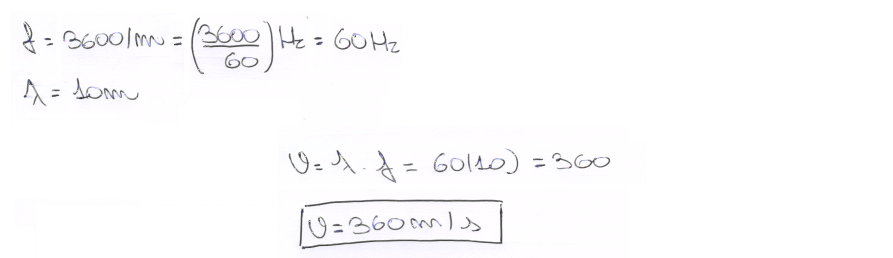 f = 3600/m = (3600/60) Hz = 60Hz
λ = 10m
v = λ . f = 60(10) = 360
v = 360 m/s